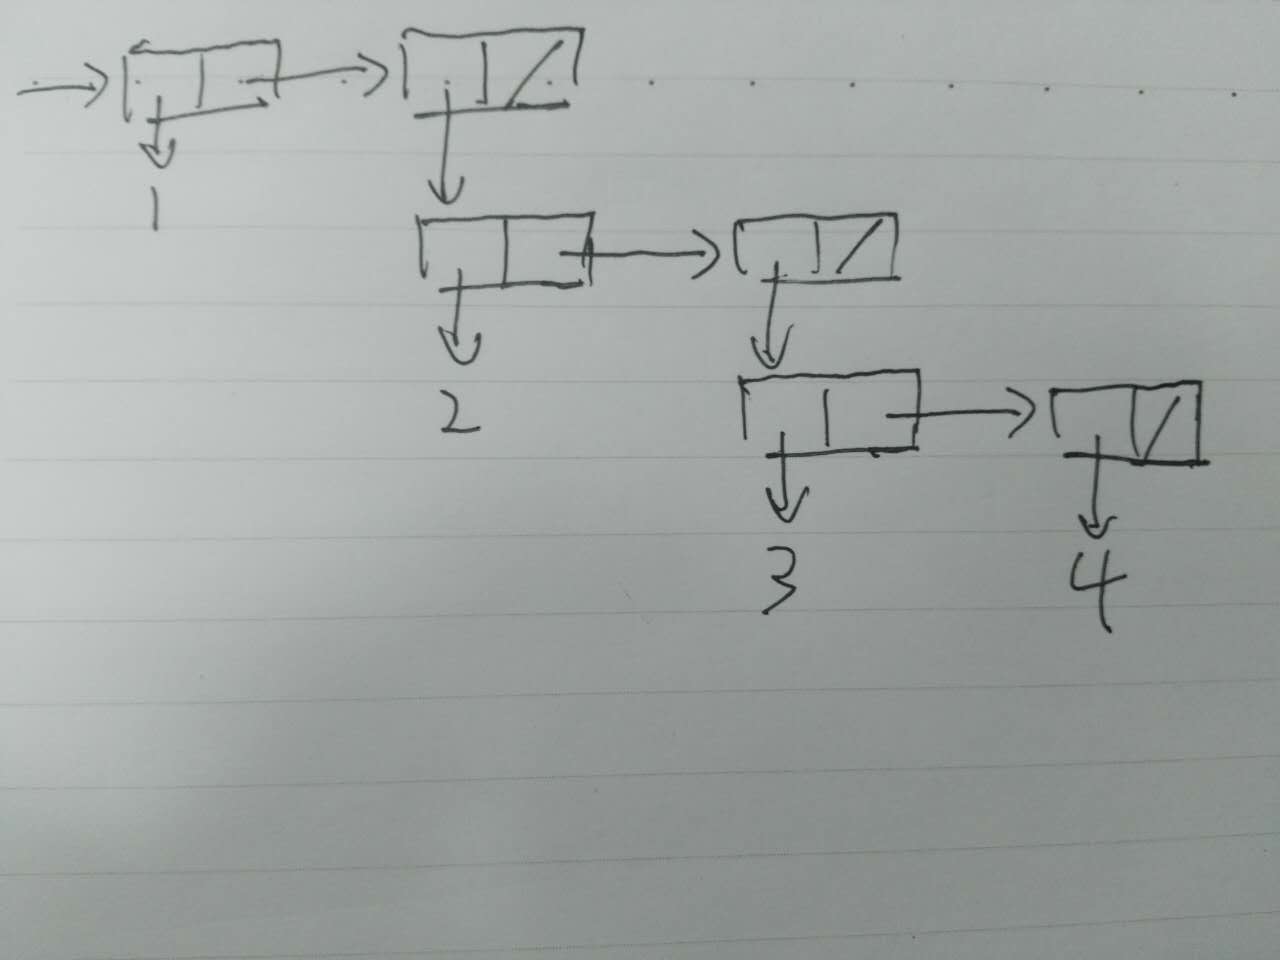 1
2
3 4